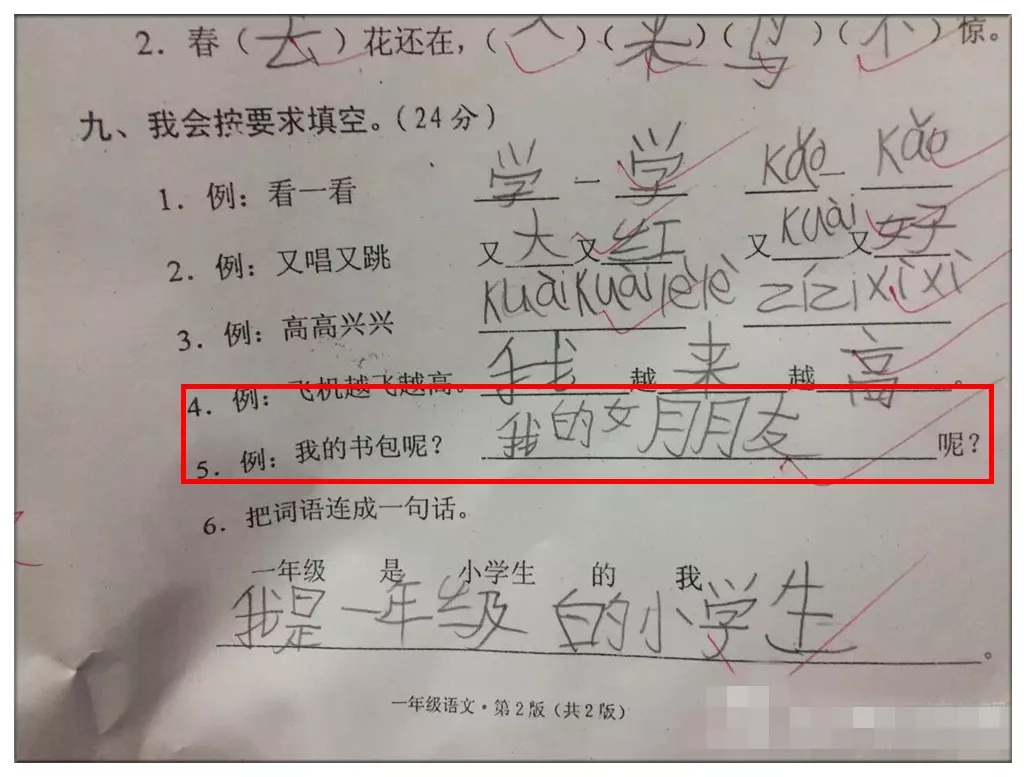 2. 春(去)花还在,(人)(来)(鸟)(不)惊。
九、我会按要求填空。(24分)
1. 例:看一看 学一学 kǎo一kǎo
2. 例:又唱又跳 又大又红 又kuài又好
3. 例:高高兴兴 kuàikuàilèlè zǐzǐxìxì
4. 例:飞机越飞越高。 我越来越高。
5. 例:我的书包呢? 我的女朋友呢?
6. 把词语连成一句话。
一年级 是 小学生 的 我
我是一年级的小学生。
一年级语文·第2版(共2版)